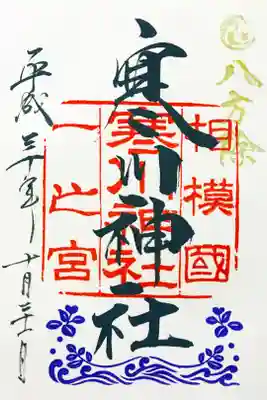 八方除
相模國
寒川神社
寒川神社
一之宮
平成三十年十月二十一日